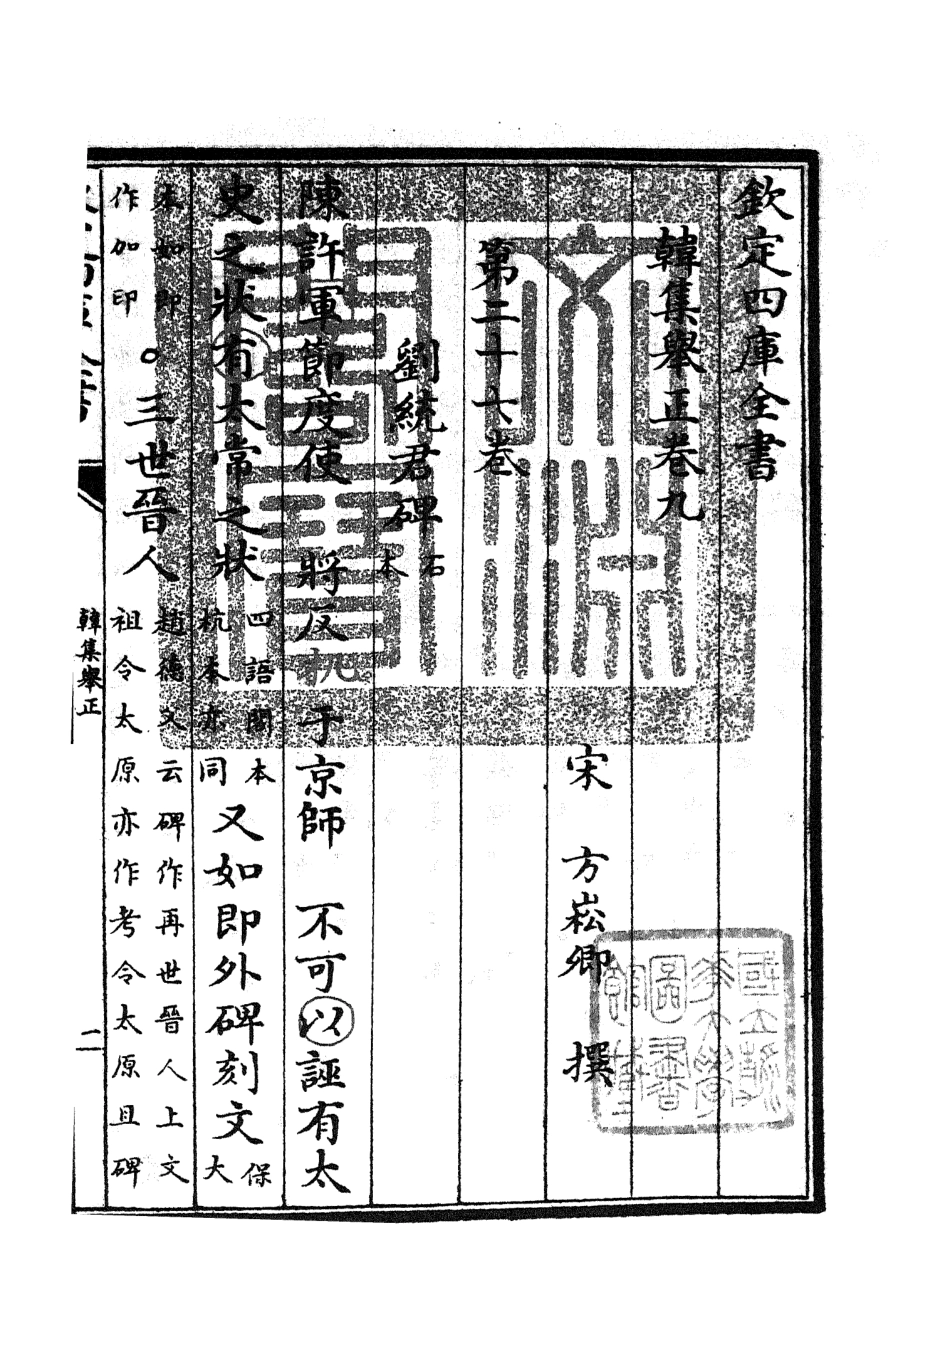 欽定四庫全書
韓集舉正卷九
宋 方崧卿 撰
第二十六卷
劉統君碑 石本
陳許軍節度使 將反 于京師 不可以誣有太
史之狀有太常之狀 四語閣本杭本亦同 又如即外碑刻文 保大
本如即作加印 。三世晉人 趙德父云碑作再世晉人上文祖令太原亦作考令太原且碑
韓集舉正
一
文淵閣寶